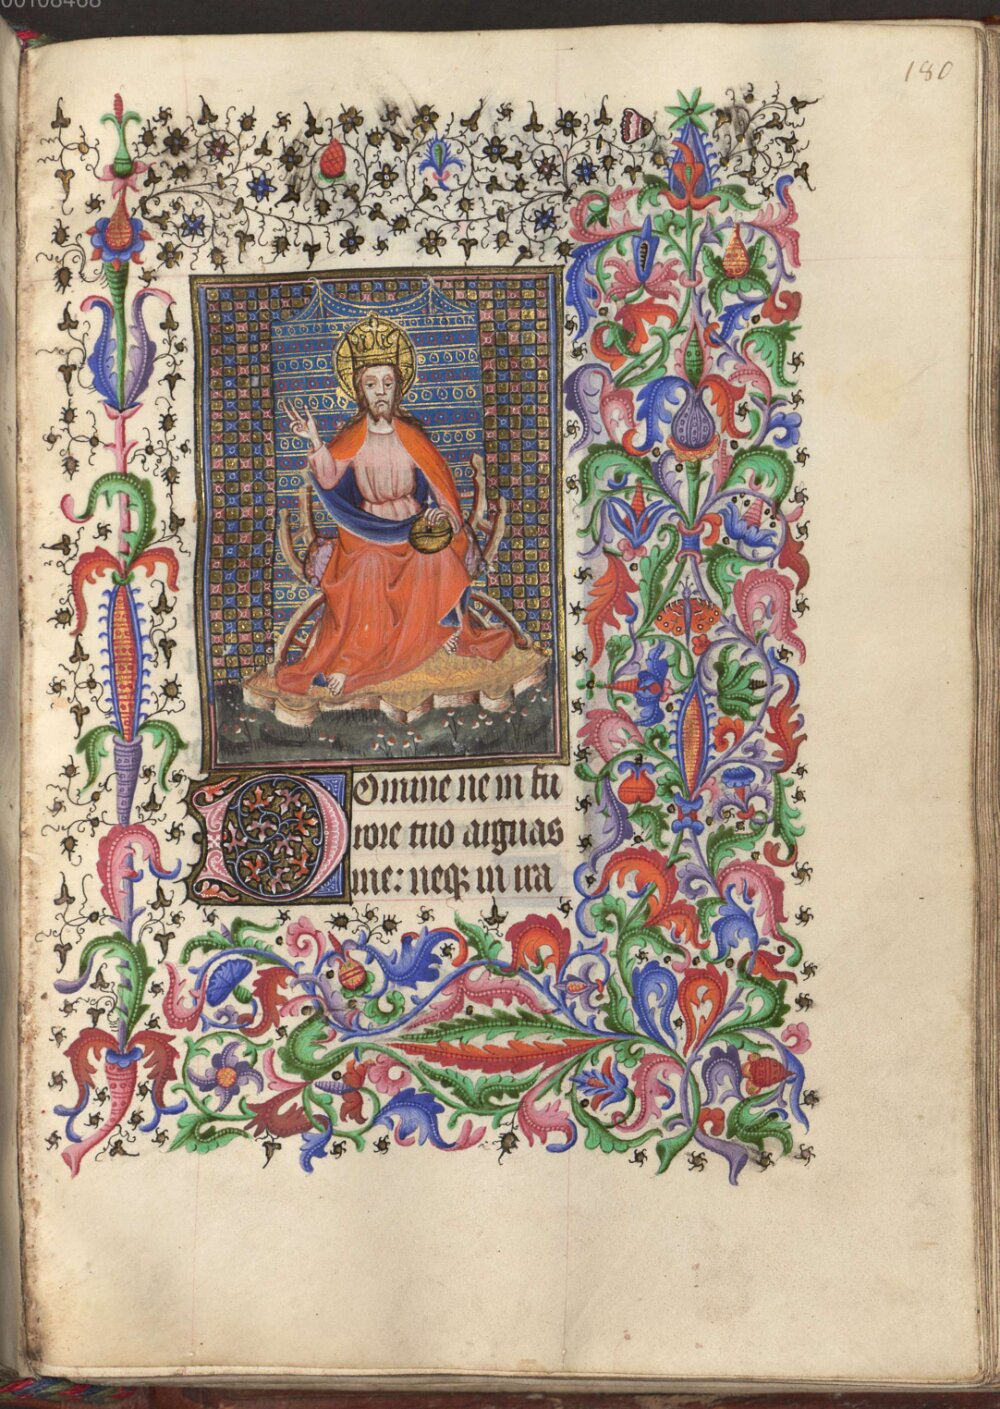 00108468
180
Domine ne in fu
rore tuo arguas
me: neq; in ira